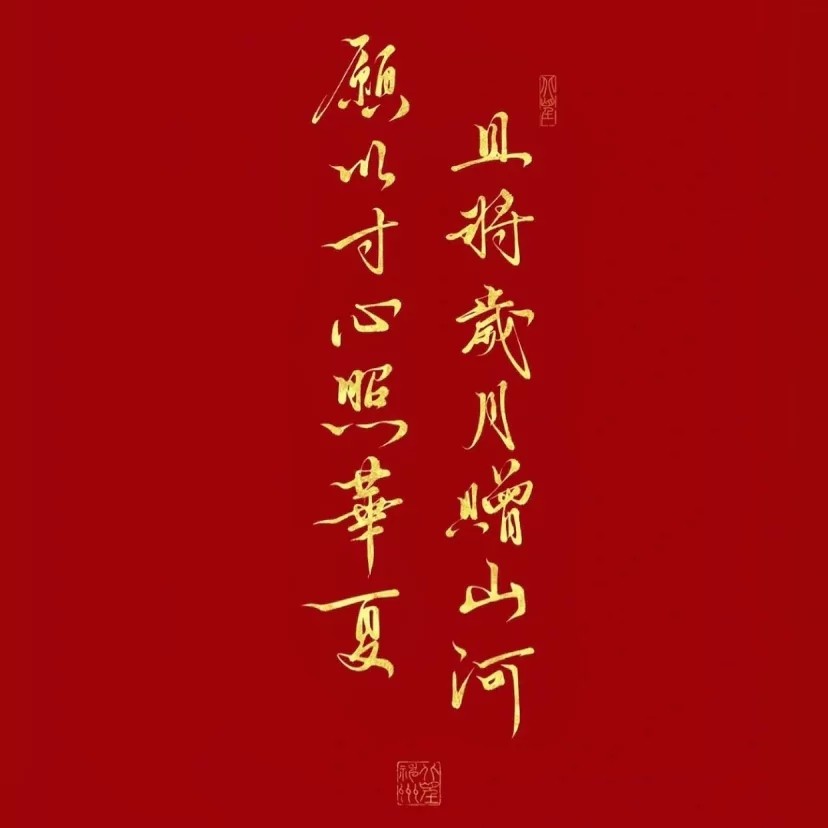 且將歲月贈山河
願以寸心照華夏